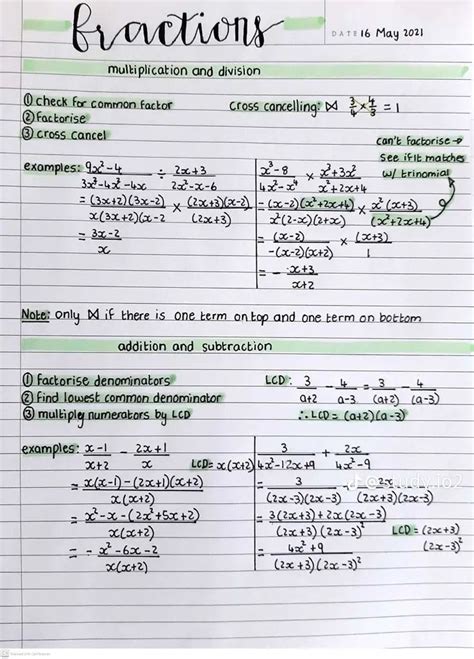 fractions
DATE 16 May 2021
multiplication and division
① check for common factor
② factorise
③ cross cancel
cross cancelling: ⋈ 3/4 × 4/3 = 1
can't factorise →
see if it matches
w/ trinomial
examples: 9x²-4 / 3x³-4x²-4x ÷ 2x+3 / 2x²-x-6
= (3x+2)(3x-2) / x(3x+2)(x-2 × (2x+3)(x-2) / (2x+3)
= 3x-2 / x
x³-8 / 4x²-x⁴ × x³+3x² / x²+2x+4
= (x-2)(x²+2x+4) / x²(2-x)(2+x) × x²(x+3) / (x²+2x+4)
= (x-2) / -(x-2)(x+2) × (x+3) / 1
= - x+3 / x+2
Note: only ⋈ if there is one term on top and one term on bottom
addition and subtraction
① factorise denominators
② find lowest common denominator
③ multiply numerators by LCD
LCD: 3/a+2 - 4/a-3 = 3/(a+2) - 4/(a-3)
∴ LCD = (a+2)(a-3)
examples: x-1 / x+2 - 2x+1 / x
LCD = x(x+2)
= x(x-1)-(2x+1)(x+2) / x(x+2)
= x²-x-(2x²+5x+2) / x(x+2)
= -x²-6x-2 / x(x+2)
3 / 4x²-12x+9 + 2x / 4x²-9
= 3 / (2x-3)(2x-3) 2x / (2x+3)(2x-3)
= 3(2x+3)+2x(2x-3) / (2x+3)(2x-3)²
LCD = (2x+3)
(2x-3)²
= 4x²+9 / (2x+3)(2x-3)²